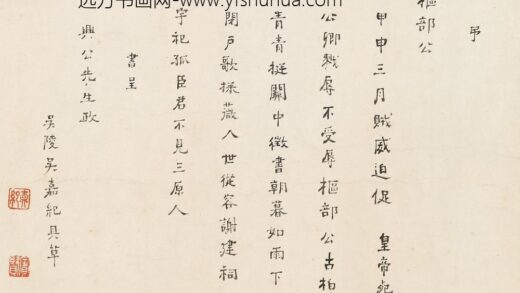 远方书画网-www.yfshuhua.com
弔
樞部公
甲申三月賊威迫促 皇帝宛
公卿戮辱不受辱樞部公古柏
青青挺關中徵書朝暮如雨下
閉戶歌採薇人世從容謝建祠
宰祀孤臣君不見三原人
書呈
興公先生政
吳陵吳嘉紀具草